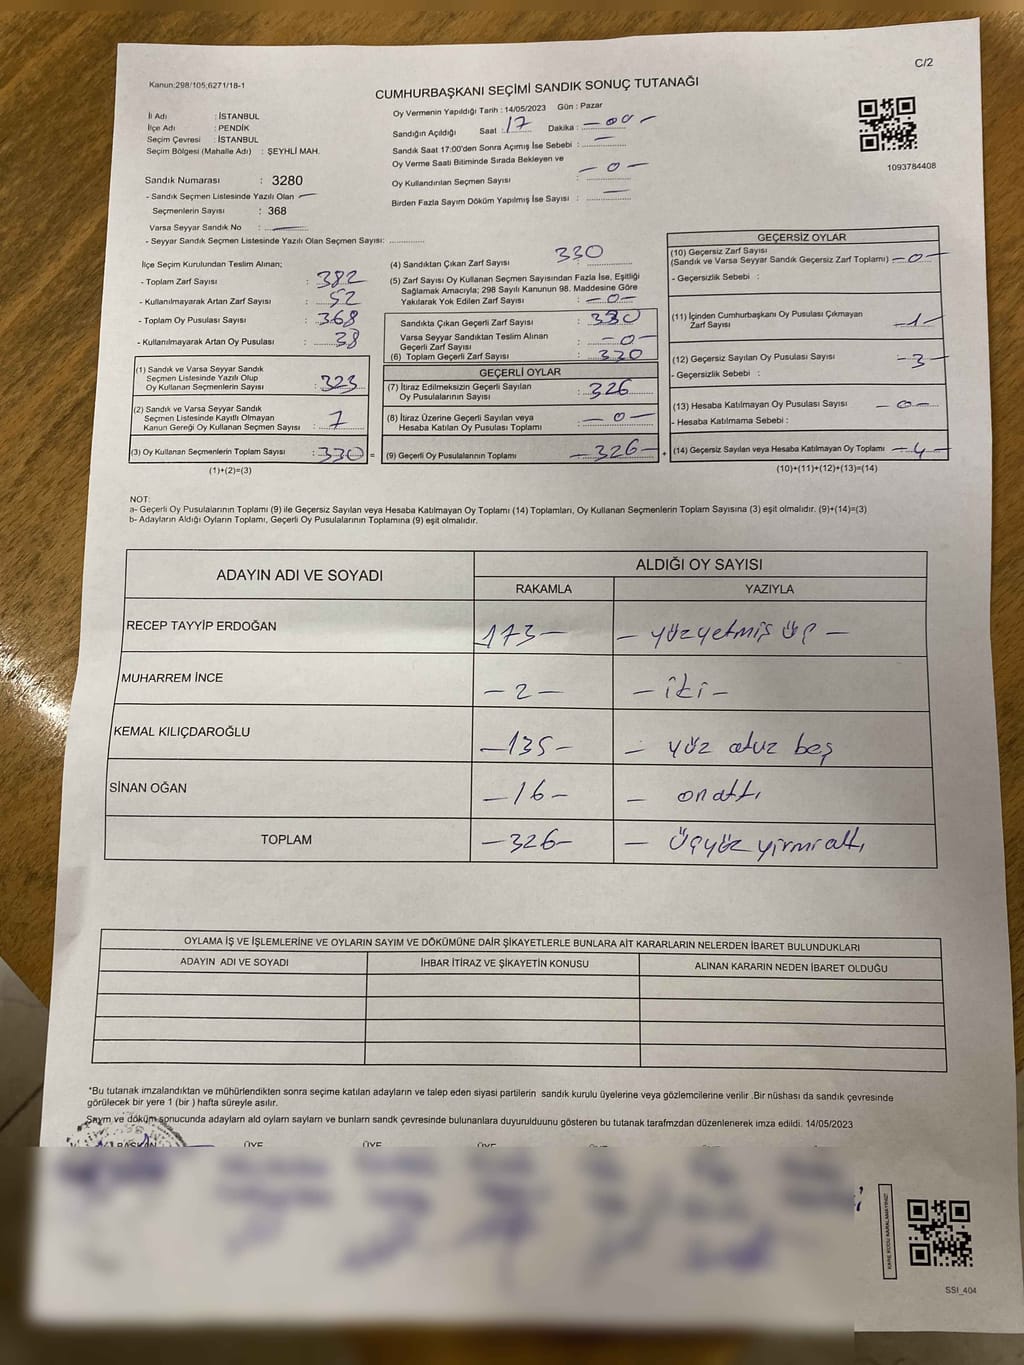 C/2
Kanun:298/105;6271/18-1
CUMHURBAŞKANI SEÇİMİ SANDIK SONUÇ TUTANAĞI
İl Adı : İSTANBUL
İlçe Adı : PENDİK
Seçim Çevresi : İSTANBUL
Seçim Bölgesi (Mahalle Adı) : ŞEYHLİ MAH.
Sandık Numarası : 3280
- Sandık Seçmen Listesinde Yazılı Olan
Seçmenlerin Sayısı : 368
Varsa Seyyar Sandık No :
- Seyyar Sandık Seçmen Listesinde Yazılı Olan Seçmen Sayısı:
Oy Vermenin Yapıldığı Tarih : 14/05/2023 Gün : Pazar
Sandığın Açıldığı Saat : 17 Dakika : - 00 -
Sandık Saat 17:00'den Sonra Açımış İse Sebebi : -
Oy Verme Saati Bitiminde Sırada Bekleyen ve
Oy Kullandırılan Seçmen Sayısı : - 0 -
Birden Fazla Sayım Döküm Yapılmış İse Sayısı : -
1093784408
İlçe Seçim Kurulundan Teslim Alınan;
- Toplam Zarf Sayısı : 382
- Kullanılmayarak Artan Zarf Sayısı : 52
- Toplam Oy Pusulası Sayısı : 368
- Kullanılmayarak Artan Oy Pusulası : 38
(1) Sandık ve Varsa Seyyar Sandık
Seçmen Listesinde Yazılı Olup
Oy Kullanan Seçmenlerin Sayısı : 323
(2) Sandık ve Varsa Seyyar Sandık
Seçmen Listesinde Kayıtlı Olmayan
Kanun Gereği Oy Kullanan Seçmen Sayısı : 7
(3) Oy Kullanan Seçmenlerin Toplam Sayısı : 330 =
(1)+(2)=(3)
(4) Sandıktan Çıkan Zarf Sayısı : 330
(5) Zarf Sayısı Oy Kullanan Seçmen Sayısından Fazla İse, Eşitliği
Sağlamak Amacıyla; 298 Sayılı Kanunun 98. Maddesine Göre
Yakılarak Yok Edilen Zarf Sayısı : - 0 -
Sandıkta Çıkan Geçerli Zarf Sayısı : 330
Varsa Seyyar Sandıktan Teslim Alınan
Geçerli Zarf Sayısı : - 0 -
(6) Toplam Geçerli Zarf Sayısı : 330
GEÇERLİ OYLAR
(7) İtiraz Edilmeksizin Geçerli Sayılan
Oy Pusulasının Sayısı : 326
(8) İtiraz Üzerine Geçerli Sayılan veya
Hesaba Katılan Oy Pusulası Toplamı : - 0 -
(9) Geçerli Oy Pusulalarının Toplamı - 326 - +
GEÇERSİZ OYLAR
(10) Geçersiz Zarf Sayısı
(Sandık ve Varsa Seyyar Sandık Geçersiz Zarf Toplamı) - 0 -
- Geçersizlik Sebebi :
(11) İçinden Cumhurbaşkanı Oy Pusulası Çıkmayan
Zarf Sayısı - 1 -
(12) Geçersiz Sayılan Oy Pusulası Sayısı - 3 -
- Geçersizlik Sebebi :
(13) Hesaba Katılmayan Oy Pusulası Sayısı - 0 -
- Hesaba Katılmama Sebebi :
(14) Geçersiz Sayılan veya Hesaba Katılmayan Oy Toplamı - 4 -
(10)+(11)+(12)+(13)=(14)
NOT:
a- Geçerli Oy Pusulalarının Toplamı (9) ile Geçersiz Sayılan veya Hesaba Katılmayan Oy Toplamı (14) Toplamları, Oy Kullanan Seçmenlerin Toplam Sayısına (3) eşit olmalıdır. (9)+(14)=(3)
b- Adayların Aldığı Oyların Toplamı, Geçerli Oy Pusulalarının Toplamına (9) eşit olmalıdır.
ADAYIN ADI VE SOYADI ALDIĞI OY SAYISI
RAKAMLA YAZIYLA
RECEP TAYYİP ERDOĞAN 173 - - yüzyetmiş üç -
MUHARREM İNCE - 2 - - iki -
KEMAL KILIÇDAROĞLU - 135 - - yüz otuz beş
SİNAN OĞAN - 16 - - onaltı
TOPLAM - 326 - - Üçyüz yirmi altı
OYLAMA İŞ VE İŞLEMLERİNE VE OYLARIN SAYIM VE DÖKÜMÜNE DAİR ŞİKAYETLERLE BUNLARA AİT KARARLARIN NELERDEN İBARET BULUNDUKLARI
ADAYIN ADI VE SOYADI İHBAR İTİRAZ VE ŞİKAYETİN KONUSU ALINAN KARARIN NEDEN İBARET OLDUĞU
*Bu tutanak imzalandıktan ve mühürlendikten sonra seçime katılan adayların ve talep eden siyasi partilerin sandık kurulu üyelerine veya gözlemcilerine verilir .Bir nüshası da sandık çevresinde
görülecek bir yere 1 (bir ) hafta süreyle asılır.
Sayım ve döküm sonucunda adayların ald oylarn saylarn ve bunlarn sandk çevresinde bulunanlara duyurulduunu gösteren bu tutanak tarafmzdan düzenlenerek imza edildi. 14/05/2023
BAŞKAN ÜYE ÜYE ÜYE
KARE KODU KARALAMAYINIZ!
SSI_404